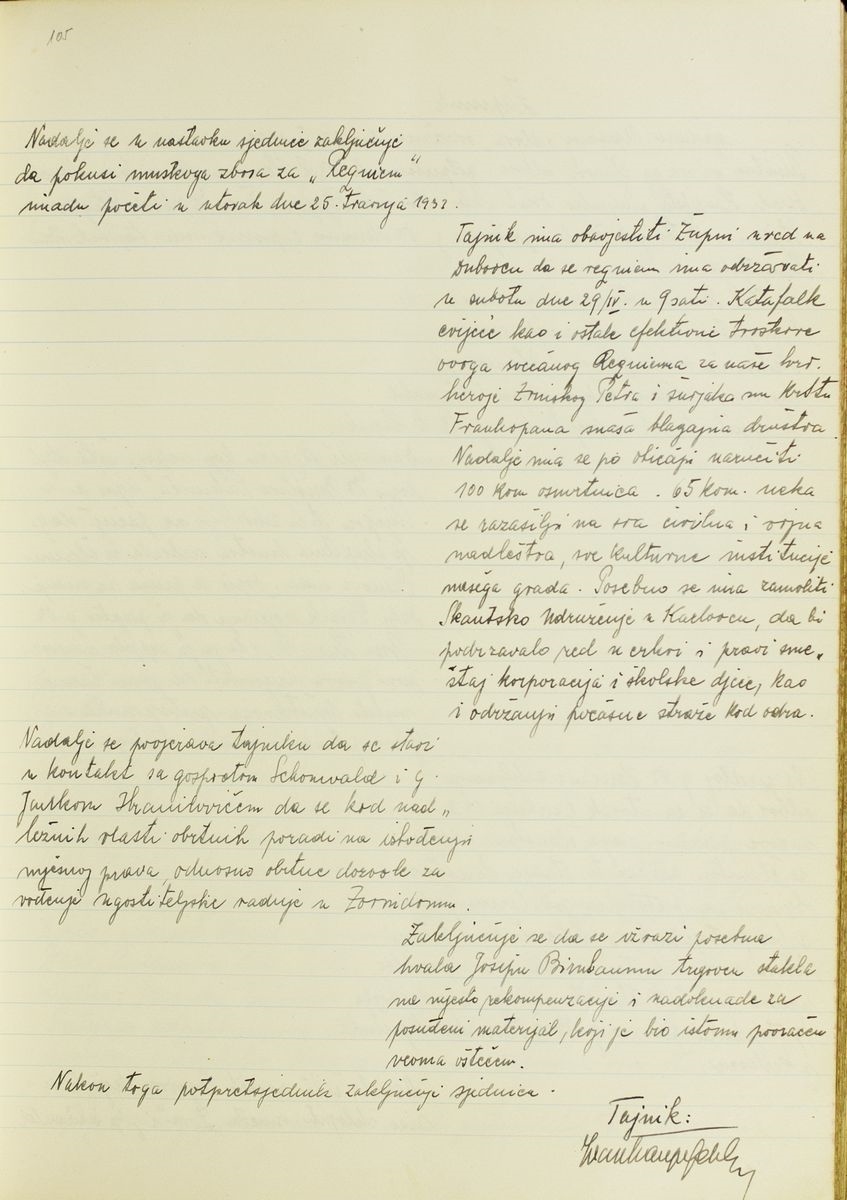 105
Nadalje se u nastavku sjednice zaključuje
da pokusi muškoga zbora za „Requiem“
imadu početi u utorak dne 25. travnja 1932.
Tajnik ima obavjestiti Župni ured na
Dubovcu da se requiem ima održavati
u subotu dne 29/IV. u 9 sati. Katafalk
cvijeće kao i ostale efektivne troškove
ovoga svečanog Requiema za naše hrv.
heroje Zrinskog Petra i šurjaka mu Krstu
Frankopana snaša blagajna društva
Nadalje ima se po običaju naručiti
100 kom osmrtnica. 65 kom. neka
se razašilju na sva civilna i vojna
nadleštva, sve kulturne institucije
našega grada. Posebno se ima zamoliti
Skautsko Udruženje u Karlovcu, da bi
podržavalo red u crkvi i pravi sme„
štaj korporacija i školske djece, kao
i održanju počasne straže kod odra.
Nadalje se povjerava tajniku da se stavi
u kontakt sa gospodom Schonwald i g.
Jankom Hranilovićem da se kod nad„
ležnih vlasti obrtnih poradi na ishođenju
mjesnog prava, odnosno obrtne dozvole za
vođenje ugostiteljske radnje u Zorindomu.
Zaključuje se da se izrazi posebna
hvala Josipu Birnbaumu trgovcu stakla
na mjesto rekompenzacije i nadoknade za
posuđeni materijal, koji je bio istomu povraćen
veoma oštećen.
Nakon toga potpretsjednik zaključuje sjednicu.
Tajnik: